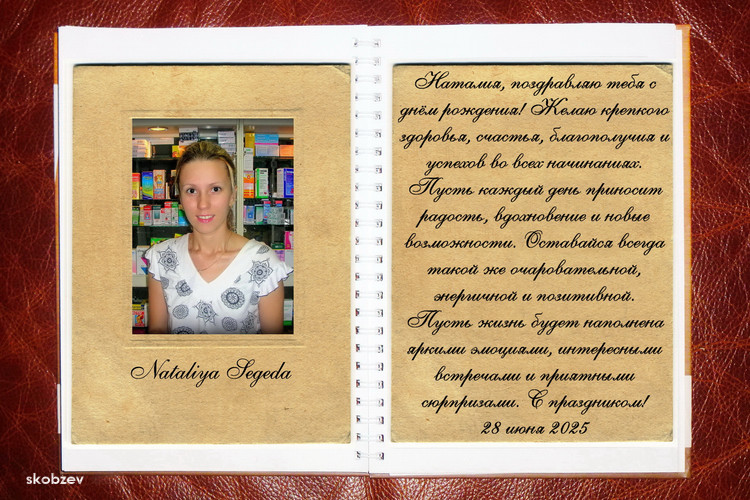 Nataliya Segeda
Наталия, поздравляю тебя с
днём рождения! Желаю крепкого
здоровья, счастья, благополучия и
успехов во всех начинаниях.
Пусть каждый день приносит
радость, вдохновение и новые
возможности. Оставайся всегда
такой же очаровательной,
энергичной и позитивной.
Пусть жизнь будет наполнена
яркими эмоциями, интересными
встречами и приятными
сюрпризами. С праздником!
28 июня 2025
skobzev